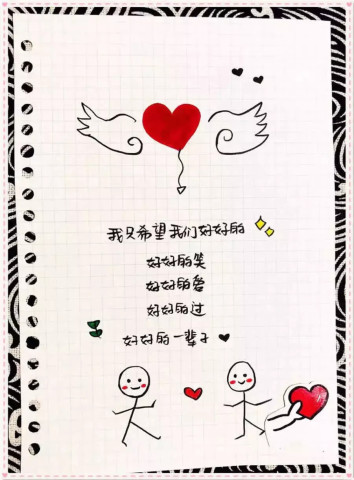 我只希望我们好好的
好好的笑
好好的爱
好好的过
好好的一辈子